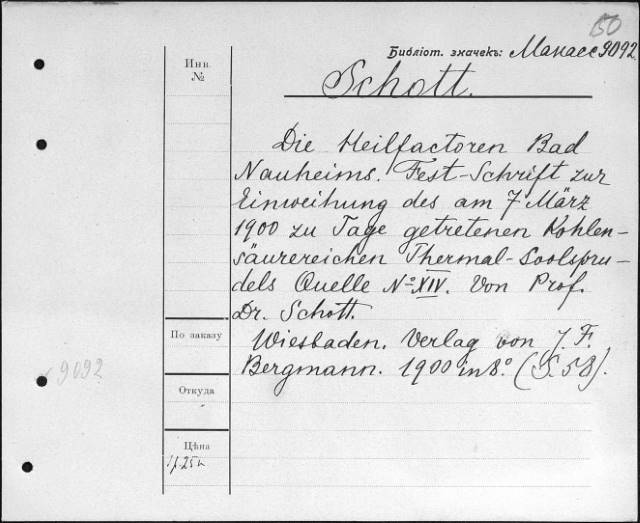 150
Библіот. значекъ: Манасс 9092.
Инв. №
Schott.
Die Heilfactoren Bad
Nauheims. Fest-Schrift zur
Einweihung des am 7 März
1900 zu Tage getretenen Kohlen-
säurereichen Thermal-Soolspru-
dels Quelle No XIV. Von Prof.
Dr. Schott.
Wiesbaden. Verlag von J. F.
Bergmann. 1900 in 8o. (S. 58).
По заказу
9092
Откуда
Цѣна